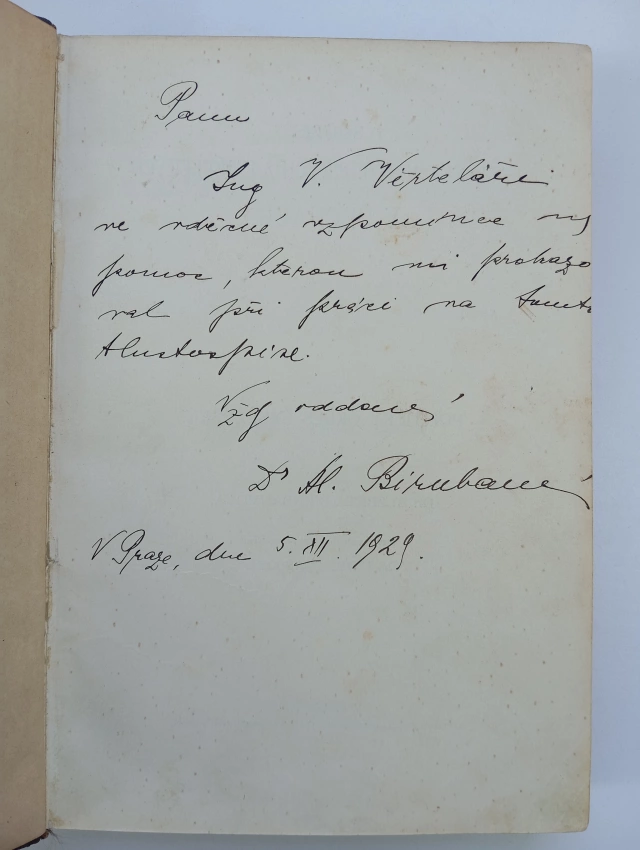 Panu
Ing V. Věrteláři
ve vděčné vzpomínce na
pomoc, kterou mi prokazo
val při práci na tomto
tlustospise.
Vždy oddaný
Dr Al. Birnbaum
V Praze, dne 5. XII. 1929.